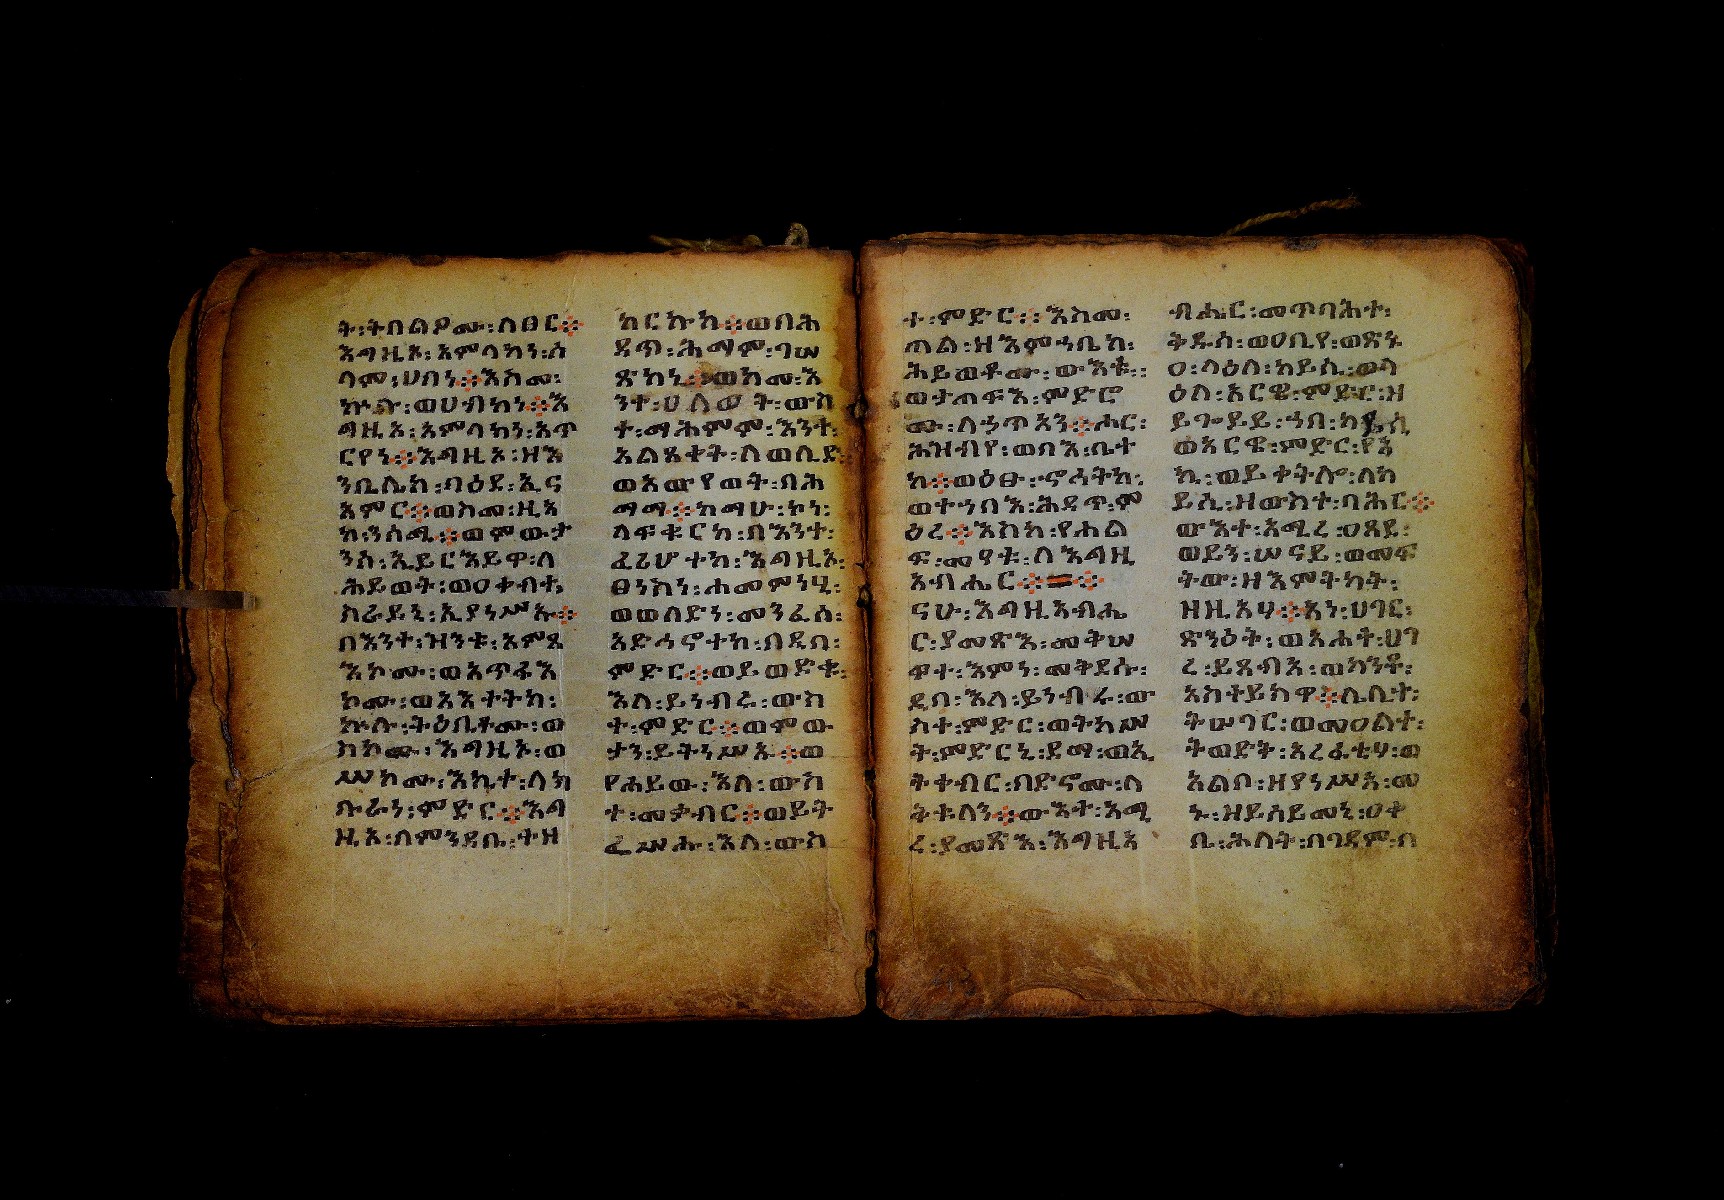 ት፡ትበልዖሙ፡ለፀር፨
እግዚኦ፡አምላክነ፡ሰ
ላም፡ሀበነ፨እስመ፡
ኵሎ፡ወሀብከነ፨እ
ግዚኦ፡አምላክነ፡አጥ
ርየነ፨እግዚኦ፡ዘእ
ንቢሌከ፡ባዕደ፡ኢና
አምር፨ወስመ፡ዚአ
ከ፡ንሰሚ፨ወምውታ
ንሰ፡ኢይርእይዋ፡ለ
ሕይወት፡ወዐቀብተ፡
ስራይኒ፡ኢያነሥኡ፨
በእንተ፡ዝንቱ፡አምጻ
እኮሙ፡ወአጥፋእ
ኮሙ፡ወአእተትከ፡
ኵሎ፡ትዕቢቶሙ፡ወ
ስኮሙ፡እግዚኦ፡ወ
ሥኮሙ፡እኪተ፡ለክ
ቡራነ፡ምድር፨እግ
ዚኦ፡በምንዳቤ፡ተዘ
ከርኩከ፨ወበሕ
ዳጥ፡ሕማም፡ገሠ
ጽከነ፨ወከመ፡እ
ንተ፡ሀለወት፡ውስ
ተ፡ማሕምም፡እንተ፡
አልጸቀት፡ለወሊድ፡
ወአውየወት፡በሕ
ማማ፨ከማሁ፡ኮነ፡
ላፍቁርከ፡በእንተ፡
ፈሪሆተከ፡እግዚኦ፡
ፀንስነ፡ሐመምነሂ፡
ወወለድነ፡መንፈሰ፡
አድኅኖተከ፡በዲበ፡
ምድር፨ወይወድቁ፡
እለ፡ይነብሩ፡ውስ
ተ፡ምድር፨ወምው
ታን፡ይትነሥኡ፨ወ
የሐይው፡እለ፡ውስ
ተ፡መቃብር፨ወይት
ፌሥሑ፡እለ፡ውስ
ተ፡ምድር፨እስመ፡
ጠል፡ዘእምኀቤከ፡
ሕይወቶሙ፡ውእቱ፡
ወታጠፍእ፡ምድሮ
ሙ፡ለኃጥአን፨ሖር፡
ሕዝብየ፡ወባእ፡ቤተ
ከ፨ወዕፁ፡ኖኅትከ፡
ወተኀባእ፡ሕዳጥ፡ም
ዕረ፨እስከ፡የሐል
ፍ፡መዓቱ፡ለእግዚ
አብሔር፨
ናሁ፡እግዚአብሔ
ር፡ያመጽእ፡መቅሠ
ፍተ፡እምነ፡መቅደሱ፡
ዲበ፡እለ፡ይነብሩ፡ው
ስተ፡ምድር፡ወትከሥ
ት፡ምድርኒ፡ደማ፡ወኢ
ትቀብር፡በድኖሙ፡ለ
ቅቱለን፨ውእተ፡አሚ
ረ፡ያመጽእ፡እግዚአ
ብሔር፡መጥባሕተ፡
ቅዱሰ፡ወዐቢየ፡ወጽኑ
ዐ፡ላዕለ፡ከይሲ፡ወላ
ዕለ፡አርዌ፡ምድር፡ዘ
ይጐይይ፡ኀበ፡ከይሲ
ወአርዌ፡ምድር፡የእ
ኪ፡ወይቀትሎ፡ለከ
ይሲ፡ዘውስተ፡ባሕር፨
ውእተ፡አሚረ፡ዐጸደ፡
ወይን፡ሠናይ፡ወመፍ
ትው፡ዘእምትካት፡
ዘዚአሃ፨አነ፡ሀገር፡
ጽንዕት፡ወአሐተ፡ሀገ
ረ፡ይጸብእ፡ወከንቶ፡
እስተይከዋ፨ሌሊተ፡
ትሠገር፡ወመዐልተ፡
ትወድት፡አረፋቲሃ፡ወ
አልቦ፡ዘያነሥእ፡መ
ኑ፡ዘይሰይመኒ፡ዐቀ
ቤ፡ሕለት፡በገዳም፡በ